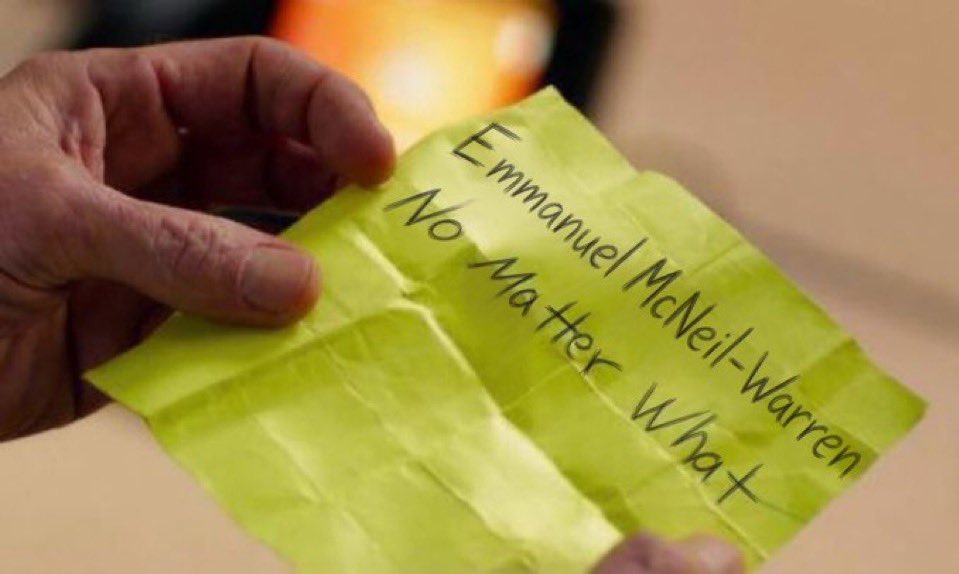 Emmanuel McNeil-Warren
No Matter What